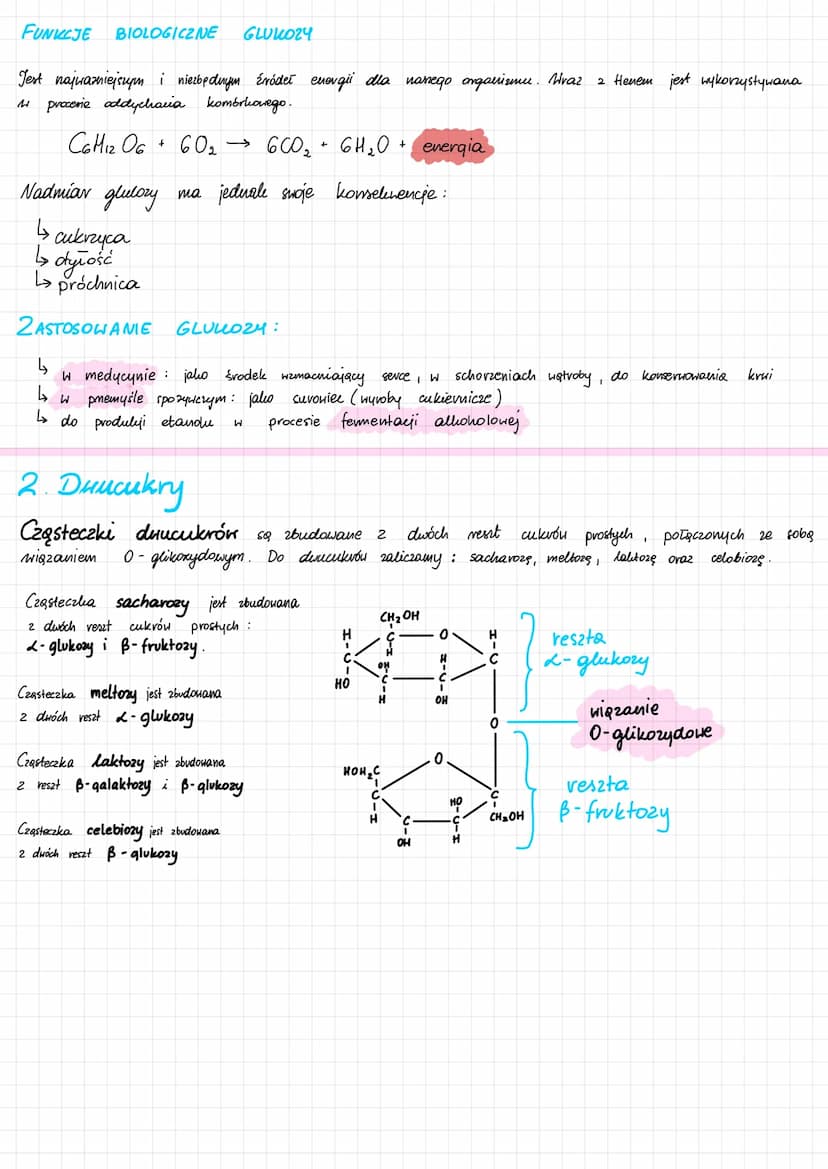 FUNKCJE BIOLOGICZNE GLUKOZY
Jest najważniejszym i niezbędnym źródeł energii dla naszego organizmu. Wraz z tlenem jest wykorzystywana
w procesie oddychania komórkowego.
C6H12O6 + 6O2 → 6CO2 + 6H2O + energia
Nadmiar glukozy ma jednak swoje konsekwencje:
↳ cukrzyca
↳ otyłość
↳ próchnica
ZASTOSOWANIE GLUKOZY:
↳ w medycynie: jako środek wzmacniający serce, w schorzeniach wątroby, do konserwowania krwi
↳ w przemyśle spożywczym: jako surowiec (wyroby cukiernicze)
↳ do produkcji etanolu w procesie fermentacji alkoholowej
2. Dwucukry
Cząsteczki dwucukrów są zbudowane z dwóch reszt cukrów prostych, połączonych ze sobą
wiązaniem O-glikozydowym. Do dwucukrów zaliczamy: sacharozę, maltozę, laktozę oraz celobiozę.
Cząsteczka sacharozy jest zbudowana
z dwóch reszt cukrów prostych:
α-glukozy i β-fruktozy.
Cząsteczka maltozy jest zbudowana
z dwóch reszt α-glukozy
Cząsteczka laktozy jest zbudowana
z reszt β-galaktozy i β-glukozy
Cząsteczka celebiozy jest zbudowana
z dwóch reszt β-glukozy
CH2OH
H C O H
C H H C
HO OH C C
H OH
reszta
α-glukozy
O
wiązanie
O-glikozydowe
HOH2C O
C HO C
H C C CH2OH
OH H
reszta
β-fruktozy